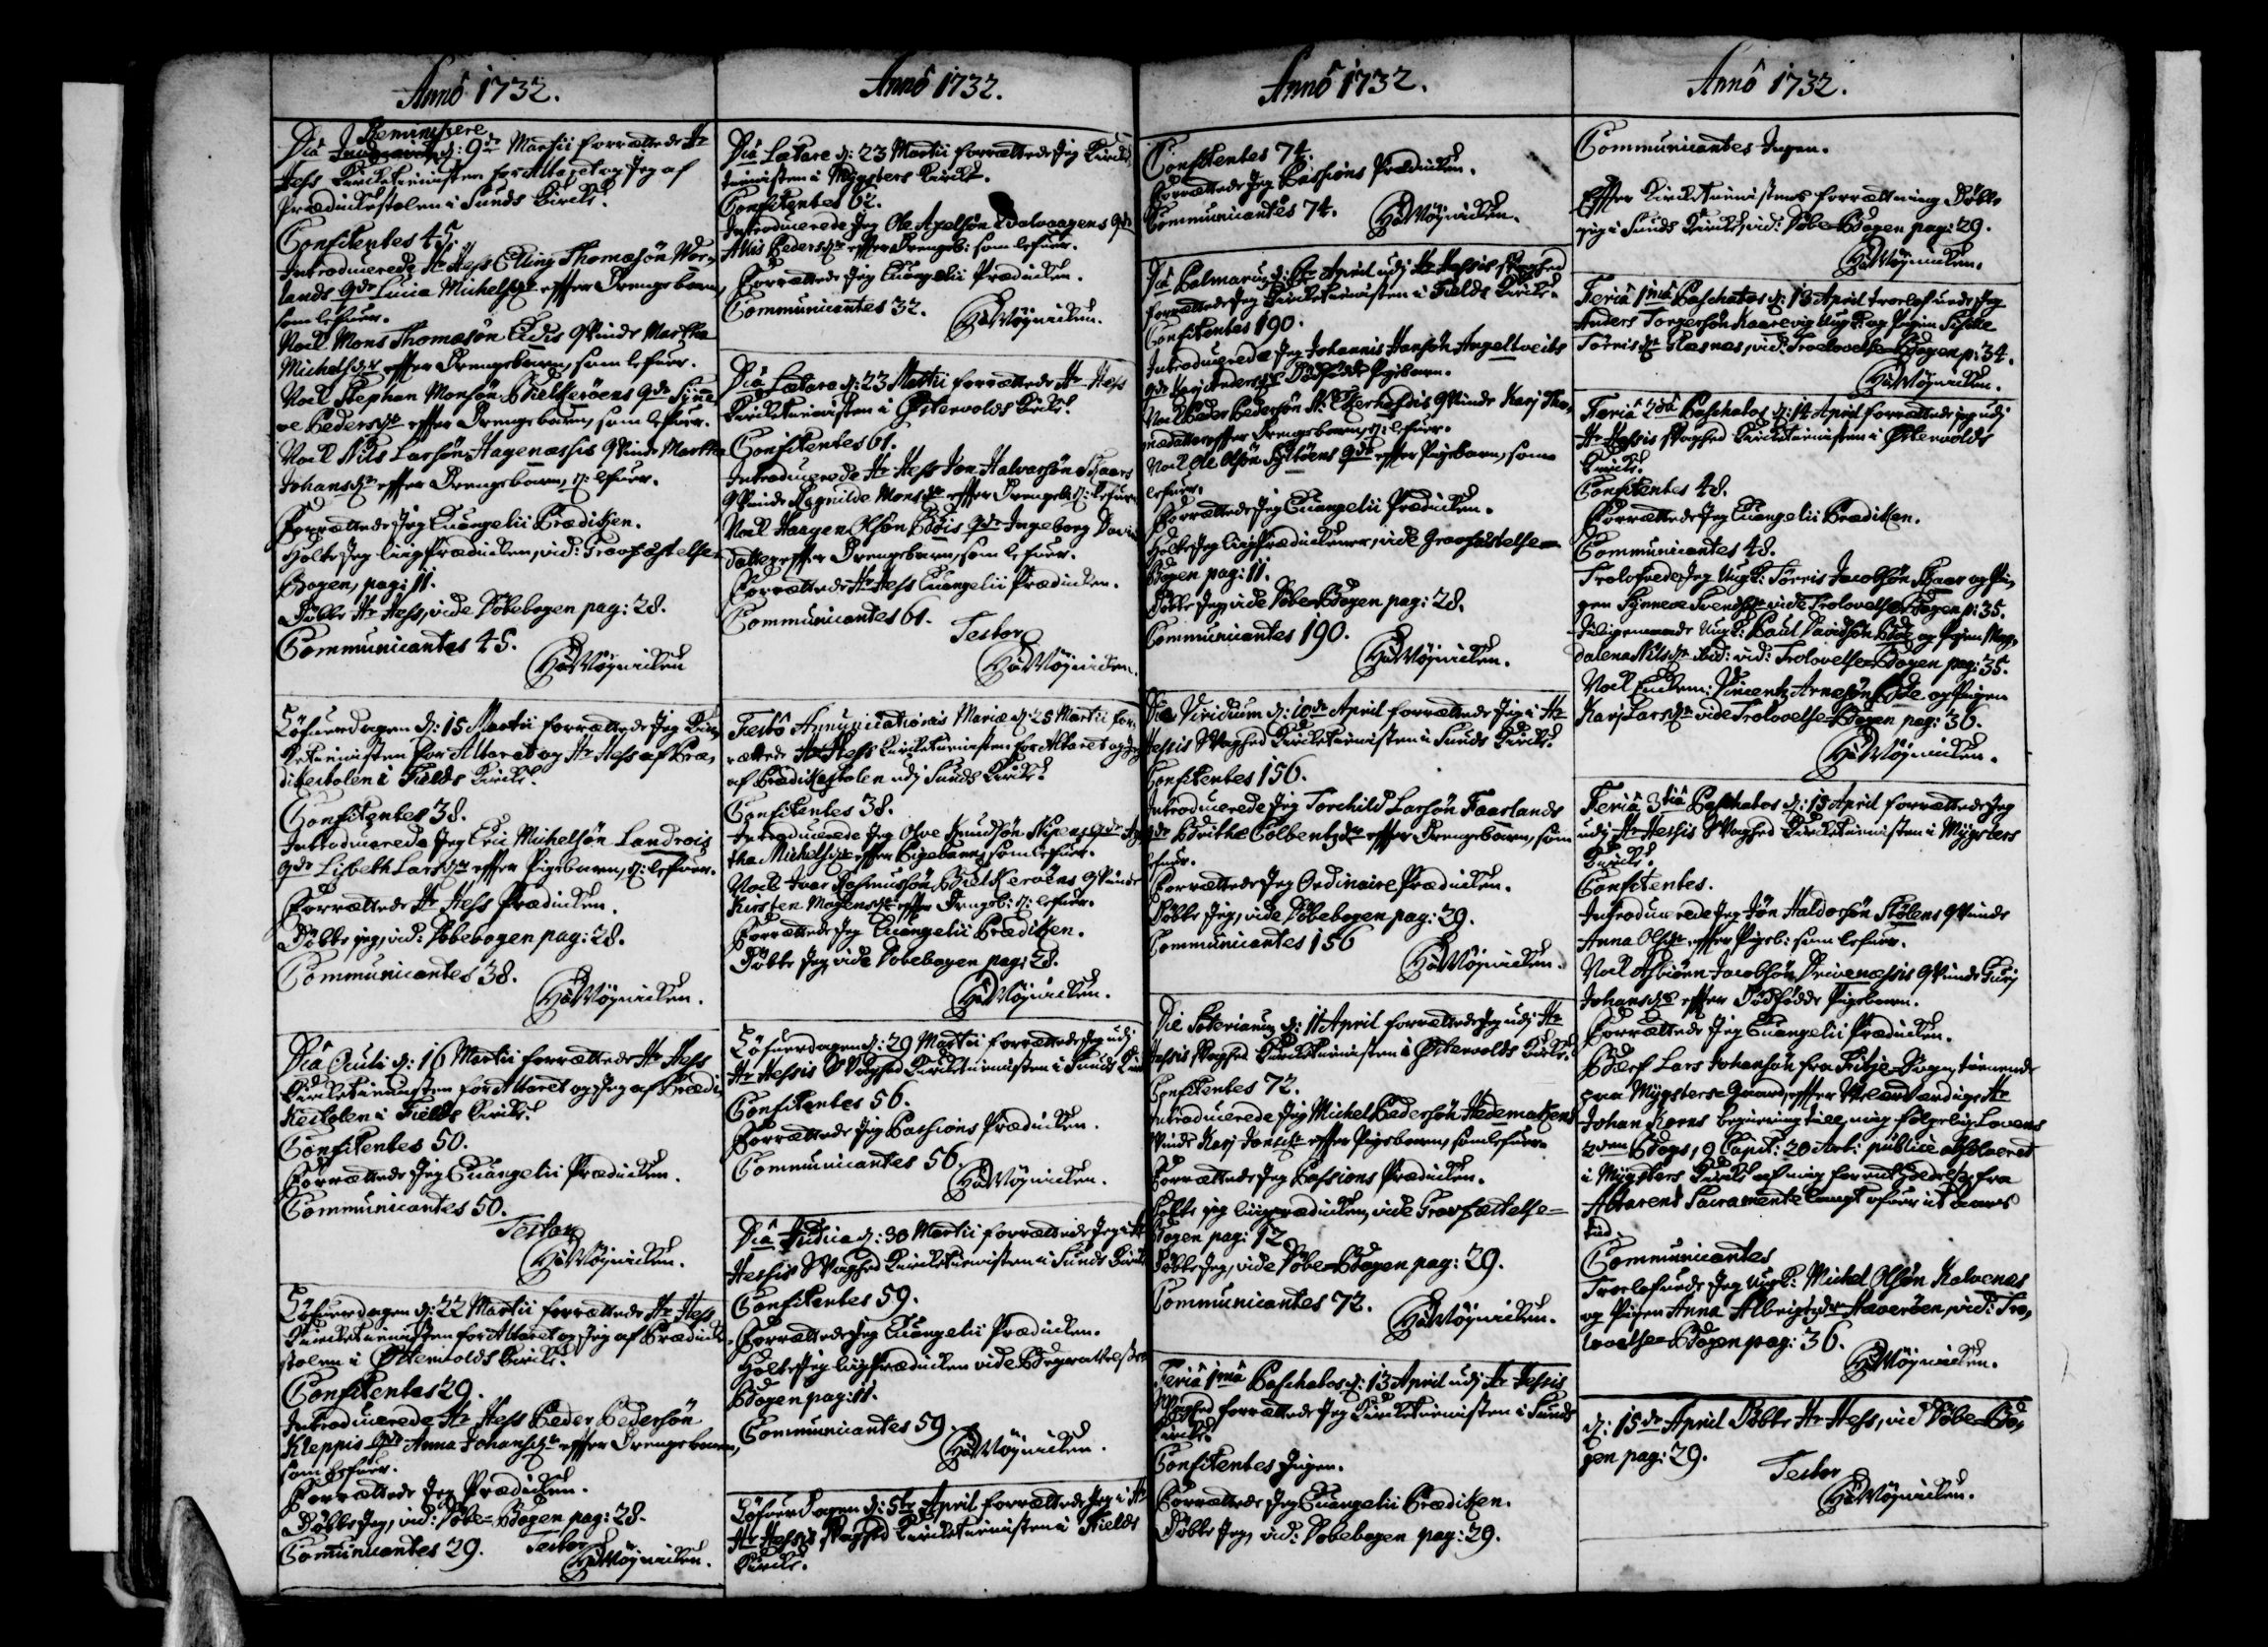 Anno 1732.
Reminiscere
Dià d: 9de Martii forrættede Hr
Hess Kircketienisten for Alteret og Jeg af
Prædickestolen i Sunds Kircke.
Confitentes 45.
Introducerede Hr Hess Elling Thomæsøn Vor-
lands qde Lucia Michelsdr effter Drengebarn,
som lefuer.
Noch Mons Thomæsøn Eidis Qvinde Martha
Michelsdr effter Drengebarn, som lefuer.
Noch Stephan Monsøn Bielkerøens qde Synne-
ve Pedersdr effter Drengebarn, som lefuer.
Noch Nils Larsøn Hagenæssis Qvinde Martha
Johansdr effter Drengebarn, s: lefuer.
Forrættede Jeg Euangelii Prædiken.
Holte Jeg liigPrædicken, vid: Gravfæstelse
Bogen, pag: 11.
Døbte Hr Hess, vide Døbebogen pag: 28.
Communicantes 45.
HMøjnicken
Løfuerdagen d: 15 Martii forrættede Jeg Kir-
ketienisten for Alteret og Hr Hess af Præ-
dikestolen i Fields Kircke.
Confitentes 38.
Introducerede Jeg Eric Michelsøn Landrois
qde Lisbeth Larsdr effter Pigebarn, s: lefuer.
Forrættede Hr Hess Prædicken.
Døbte jeg, vid: Døbebogen pag: 28.
Communicantes 38.
HMøjnicken.
Dià Oculi d: 16 Martii forrættede Hr Hess
Kircketienisten for Alteret og Jeg af Prædi-
kestolen i Fields Kircke.
Confitentes 50.
Forrættede Jeg Euangelii Prædicken.
Communicantes 50.
Testor
HMøjnicken.
Løfuerdagen d: 22 Martii forrættede Hr Hess
Kircketienisten for Alteret og Jeg af Prædicke-
stolen i Østervolds Kircke.
Confitentes 29.
Introducerede Hr Hess Peder Pedersøn
Kleppis qde Anna Johansdr effter Drengebarn,
som lefuer.
Forrættede Jeg Prædicken.
Døbte Jeg, vid: Døbe-Bogen pag: 28.
Communicantes 29. Testor
HMøjnicken.
Anno 1732.
Dià Lætare d: 23 Martii forrættede Jeg Kircke-
tienisten i Møgsters Kircke.
Confitentes 62.
Introducerede Jeg Ole Axelsøn Qvalvaagens qde
Pedersdr effter Drengeb: som lefuer.
Forrættede Jeg Euangelii Prædicken.
Communicantes 32.
HMøjnicken.
Dià Lætare d: 23 Martii forrættede Hr Hess
Kircketienisten i Østervolds Kircke.
Confitentes 61.
Introducerede Hr Hess Jon Halvorsøn Skaars
Qvinde Ragnilde Monsdr effter Drengeb: s: lefuer
Noch Haagen Olsøn Bøis qde Ingeborg Davids
datter effter Drengebarn, som lefuer.
Forrættede Hr Hess Euangelii Prædicken.
Communicantes 61.
Testor
HMøjnicken.
Festo Annunciationis Mariæ d: 25 Martii for-
rættede Hr Hess Kircketienisten for Alteret og Jeg
af Prædikestolen udj Sunds Kircke.
Confitentes 38.
Introducerede Jeg Olve Knudsøn Nipens qde
tha Michelsdr effter Pigebarn, som lefuer.
Noch Ivar Rasmusøn Bielkerøens Qvinde
Kirsten Mogensdr effter Drengeb: s: lefuer.
Forrættede Jeg Euangelii Prædiken.
Døbte Jeg vide Døbebogen pag: 28.
HMøjnicken.
Løfuerdagen d: 29 Martii forrættede Jeg udj
Hr Hessis Svaghed Kircketienisten i Sunds Kir
Confitentes 56.
Forrættede Jeg Passions Prædicken.
Communicantes 56.
HMøjnicken.
Dià Judica d: 30 Martii forrættede Jeg i Hr
Hessis Svaghed Kircketienisten i Sunds Kircke
Confitentes 59.
Forrættede Jeg Euangelii Prædicken.
Holte Jeg liigPrædicken vide Begravelses
Bogen pag: 11.
Communicantes 59.
HMøjnicken.
Løfuerdagen d: 5te April forrættede Jeg i Hr
Hr Hessis Svaghed Kircketienisten i Fields
Kircke.
Anno 1732.
Confitentes 74.
Forrættede Jeg Passions Prædicken.
Communicantes 74.
HMøjnicken.
Dià Palmarum d: 6te April udj Hr Hessis Svaghed
forrættede Jeg Kircketienisten i Fields Kircke.
Confitentes 190.
Introducerede Jeg Johannis Hansøn Angeltveits
qde Karj Andersdr Dødfødde Pigebarn.
Noch Peder Pedersøn N: Qvinde Karj Tho-
mædatter effter Drengebarn, s: lefuer.
Noch Ole Olsøn qde effter Pigebarn, som
lefuer.
Forrættede Jeg Euangelii Prædicken.
Holte Jeg liigPrædickener, vide Gravfæstelse-
Bogen pag: 11.
Døbte Jeg vide Døbe-Bogen pag: 28.
Communicantes 190.
HMøjnicken.
Die Viridium d: 10de April forrættede Jeg i Hr
Hessis Svaghed Kircketienisten i Sunds Kircke.
Confitentes 156.
Introducerede Jeg Torchild Larsøn Faarlands
qde Brithe Colbentzdr effter Drengebarn, som
lefuer.
Forrættede Jeg Ordinaire Prædicken.
Døbte Jeg, vide Døbebogen pag: 29.
Communicantes 156
HMøjnicken.
Die d: 11 April forrættede Jeg udj Hr
Hessis Svaghed Kircketienisten i Østervolds Kircke.
Confitentes 72.
Introducerede Jeg Michel Pedersøn
Qvinde Karj Jonsdr effter Pigebarn, som lefuer.
Forrættede Jeg Passions Prædicken.
Holte jeg liigprædicken, vide Gravfæstelse-
Bogen pag: 12
Døbte Jeg, vide Døbe-Bogen pag: 29.
Communicantes 72.
HMøjnicken.
Feriâ 1mâ Paschatos d: 13 April udj Hr Hessis
Svaghed forrættede Jeg Kircketienisten i Sunds
Kircke.
Confitentes Ingen.
Forrættede Jeg Euangelii Prædiken.
Døbte Jeg, vid: Døbebogen pag: 29.
Anno 1732.
Communicantes Ingen.
Effter Kircketienistens forrættning Døbte
jeg i Sunds Kircke, vid: Døbe-Bogen pag: 29.
HMøjnicken.
Feriâ 1mâ Paschatos d: 13 April troelofuede Jeg
Anders Torgersøn Kaarevig Ungk: og Pigen
Torrisdr Glæsnæs, vid: Troelovelse-Bogen p: 34.
HMøjnicken.
Feriâ 2dâ Paschatos d: 14 April forrættede jeg udj
Hr Hessis Svaghed Kircketienisten i Østervolds
Kircke.
Confitentes 48.
Forrættede Jeg Euangelii Prædiken.
Communicantes 48.
Trolofvede Jeg Ungk: Torris Jacobsøn Skaar og Pi-
gen Synneve Svendsdr vide Trolovelse-Bogen p: 35.
Ungk: Paul Davidsøn Bøe og Pigen Mag-
dalena Nilsdr ibid: vid: Trolovelse-Bogen pag: 35.
Noch Vincentz Arnesøn og Pigen
Karj Larsdr vide Trolovelse-Bogen pag: 36.
HMøjnicken.
Feriâ 3tiâ Paschatos d: 15 April forrættede Jeg
udj Hr Hessis Svaghed Kircketienisten i Møgsters
Kircke.
Confitentes.
Introducerede Jeg Jon Haldorsøn Stølens Qvinde
Anna Olsdr effter Pigeb: som lefuer.
Noch Asbiørn Jacobsøn Drivenæssis Qvinde Gurj
Johansdr effter Dødfødde Pigebarn.
Forrættede Jeg Euangelii Prædicken.
Blef Lars Johansøn fra Fitje-Sogn, tienende
paa Møgster-Gaard, effter Velærværdige Hr
Johan Korns begiering till mig følgelig Lovens
2den Bogs, 9 Capit: 20 Art: publice absolveret
i Møgsters Kircke af mig for udeblivelse fra
Altarens Sacramente langt ofuer it aars
tid.
Communicantes
Troelofuede Jeg Ungk: Michel Olsøn Kalvenes
og Pigen Anna Albrigtsdr Haverøen, vid: Tro-
lovelse-Bogen pag: 36.
HMøjnicken.
d: 15de April Døbte Hr Hess, vid Døbe-Bo-
gen pag: 29.
Testor
HMøjnicken.